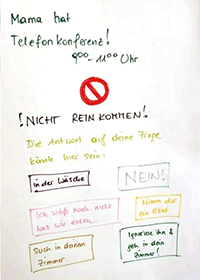 Mama hat
Telefonkonferenz!
9⁰⁰-11⁰⁰ Uhr
!NICHT REIN KOMMEN!
Die Antwort auf deine Frage
könnte hier sein:
in der Wäsche
NEIN!
Ich weiß noch nicht
was wir essen
Nimm dir
ein Eis!
Such in deinem
Zimmer
Ignoriere ihn &
geh in dein
Zimmer!